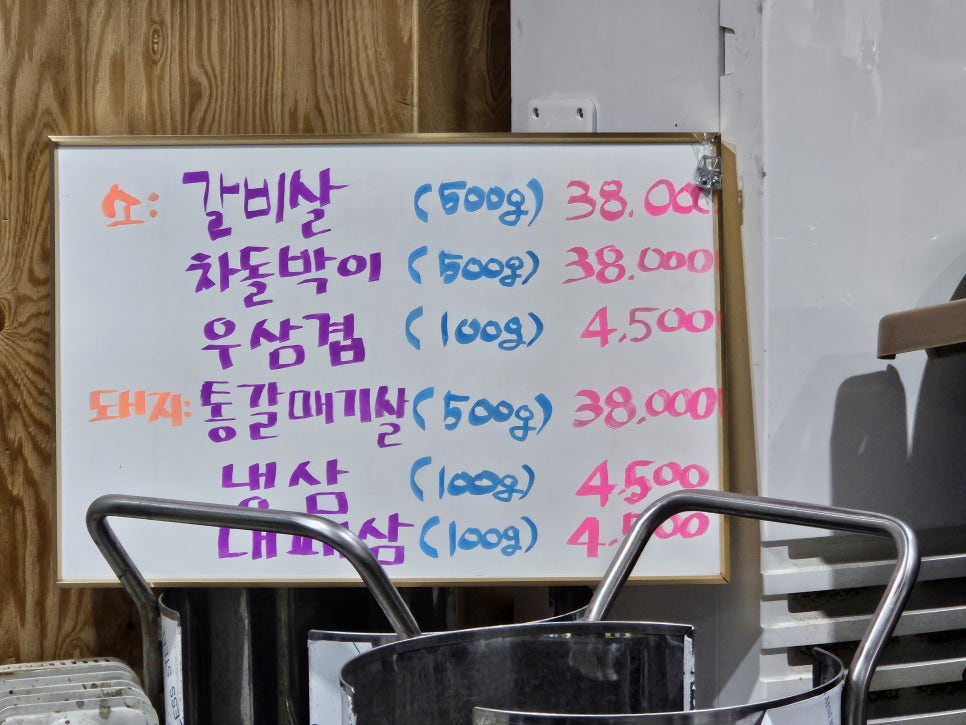 소: 갈비살 (500g) 38.000
차돌박이 (500g) 38.000
우삼겹 (100g) 4.500
돼지: 통갈매기살 (500g) 38.000
냉삼 (100g) 4.500
대패삼 (100g) 4.500